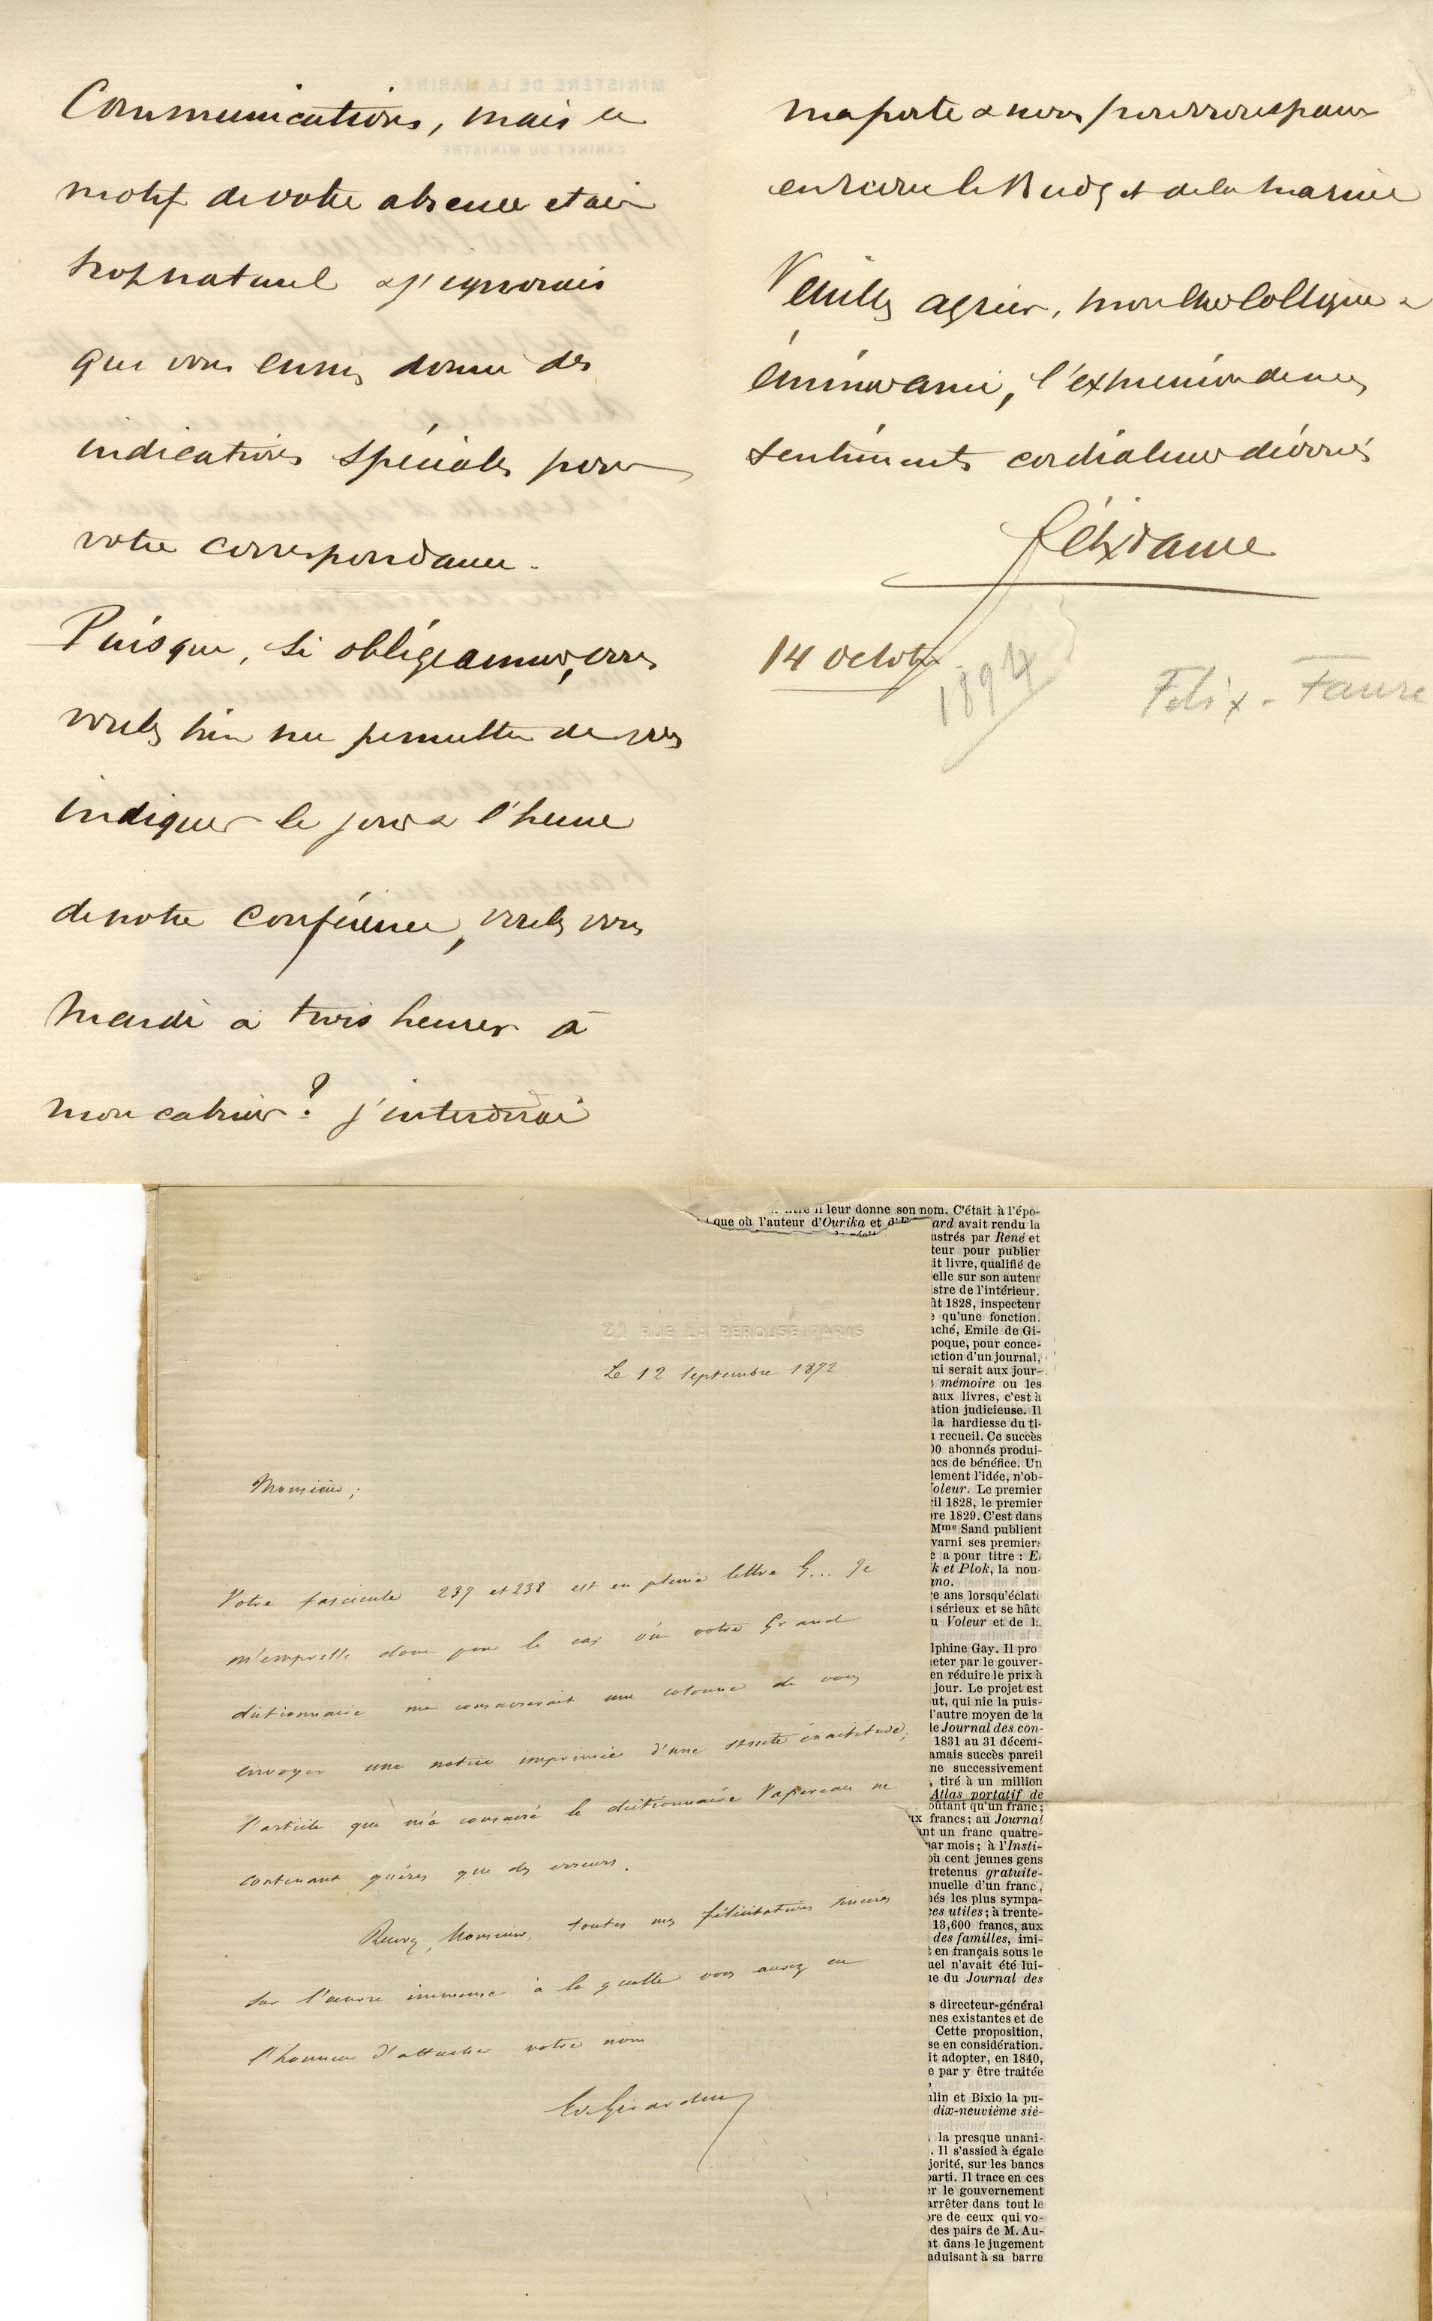 Communications, mais le
motif de votre absence était
trop naturel & j'ignorais
que vous eussiez donné des
indications spéciales pour
votre correspondance.
Puisque, si obligeamment, vous
voulez bien me permettre de vous
indiquer le jour & l'heure
de notre Conférence, voulez vous
Mardi à trois heures à
mon cabinet? j'interdirai
ma porte & nous pourrons
encore le Budget de la marine
Veuillez agréer, mon cher Collègue &
éminent ami, l'expression de mes
sentiments cordialement dévoués
Félix Faure
14 octobre
1894
Félix-Faure
MINISTÈRE DE LA MARINE
CABINET DU MINISTRE
21 RUE LA PEROUSE PARIS
Le 12 Septembre 1872
Monsieur,
Votre fascicule 237 et 238 est en pleine lettre G... Je
m'empresse donc pour le cas où votre Grand
dictionnaire me consacrerait une colonne de vous
envoyer une notice imprimée d'une stricte exactitude;
l'article que m'a consacré le dictionnaire Vapereau ne
contenant guères que des erreurs.
Recevez, Monsieur, toutes mes félicitations sincères
sur l'œuvre immense à la quelle vous aurez eu
l'honneur d'attacher votre nom
E de Girardin
il leur donne son nom. C'était à l'épo-
que où l'auteur d'Ourika et d'E ard avait rendu la
ustrés par René et
teur pour publier
it livre, qualifié de
elle sur son auteur
stre de l'intérieur.
ût 1828, inspecteur
e qu'une fonction.
ché, Emile de Gi-
poque, pour conce-
ction d'un journal,
ui serait aux jour-
mémoire ou les
aux livres, c'est à
ation judicieuse. Il
la hardiesse du ti-
u recueil. Ce succès
00 abonnés produi-
ncs de bénéfice. Un
lement l'idée, n'ob-
oleur. Le premier
il 1828, le premier
re 1829. C'est dans
Mme Sand publient
varni ses premiers
c a pour titre : E
k et Plok, la nou-
no.
e ans lorsqu'éclate
sérieux et se hâte
u Voleur et de l
lphine Gay. Il pro
eter par le gouver-
en réduire le prix à
jour. Le projet est
ut, qui nie la puis-
l'autre moyen de la
le Journal des con-
1831 au 31 décem-
amais succès pareil
ne successivement
, tiré à un million
Atlas portatif de
oûtant qu'un franc;
ux francs; au Journal
ant un franc quatre-
par mois; à l'Insti-
où cent jeunes gens
tretenus gratuite-
nnuelle d'un franc,
nés les plus sympa-
ces utiles; à trente-
13,600 francs, aux
des familles, imi-
en français sous le
uel n'avait été lui-
ue du Journal des
s directeur-général
nes existantes et de
Cette proposition,
se en considération.
it adopter, en 1840,
e par y être traitée
ulin et Bixio la pu-
dix-neuvième siè-
la presque unani-
. Il s'assied à égale
jorité, sur les bancs
parti. Il trace en ces
er le gouvernement
arrêter dans tout le
bre de ceux qui vo-
des pairs de M. Au-
nt dans le jugement
aduisant à sa barre